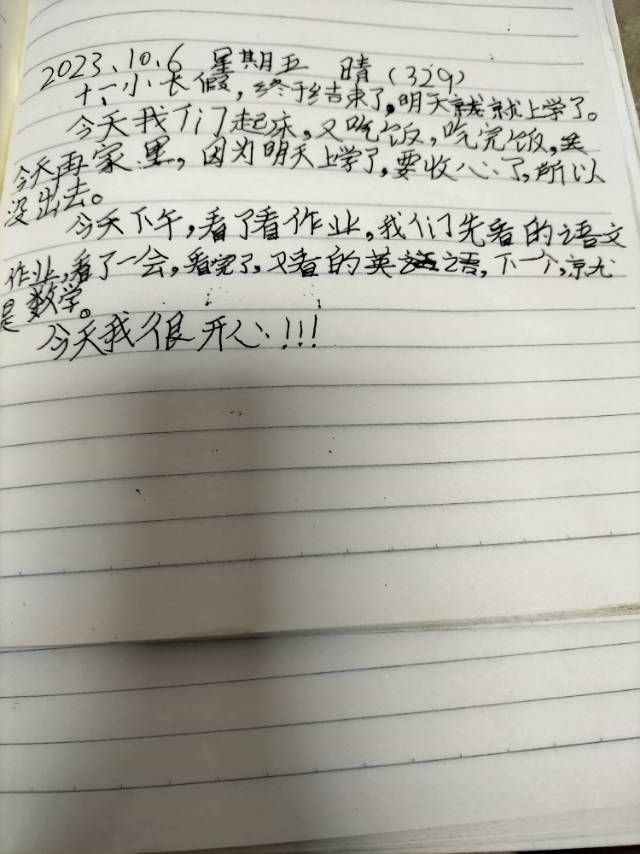 2023.10.6 星期五 晴(329)
十一小长假,终于结束了,明天就就上学了。
今天我们起床,又吃饭,吃完饭,
今天再家里,因为明天上学了,要收心了,所以
没出去。
今天下午,看了看作业,我们先看的语文
作业,看了一会,看完了,又看的英语,下一个,就
是数学。
今天我很开心!!!